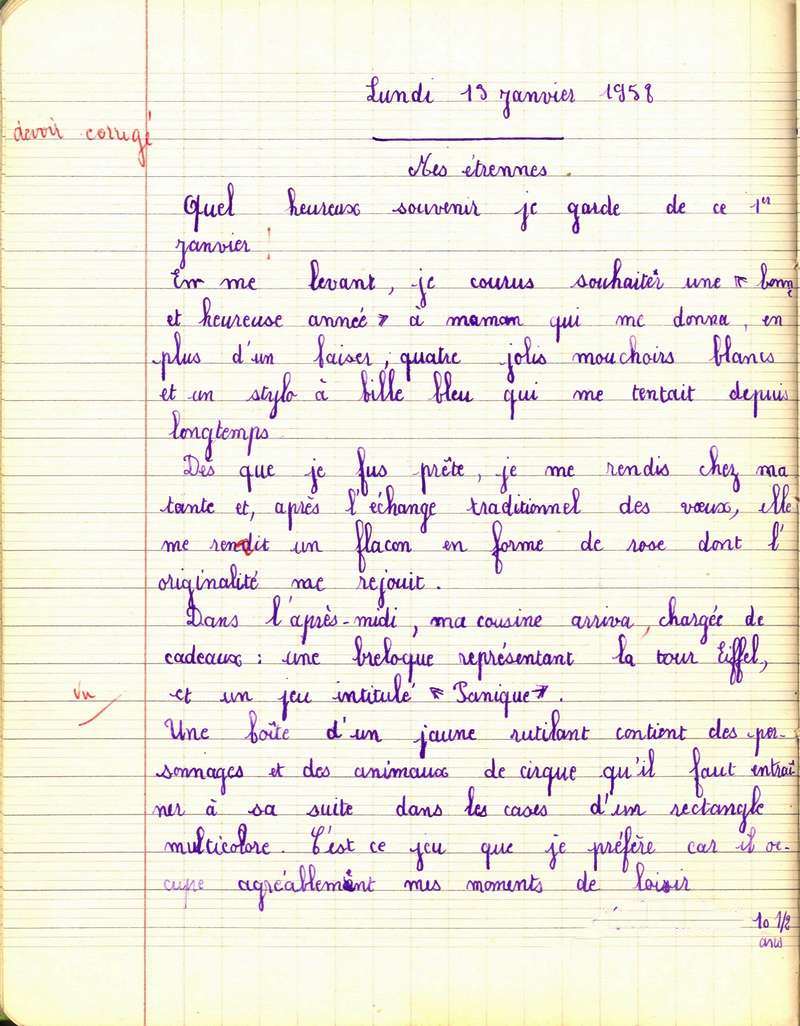 Lundi 13 janvier 1958
devoir corrigé
Mes étrennes.
Quel heureux souvenir je garde de ce 1er
janvier !
En me levant, je courus souhaiter une « bonne
et heureuse année » à maman qui me donna, en
plus d'un baiser, quatre jolis mouchoirs blancs
et un stylo à bille bleu qui me tentait depuis
longtemps
Dès que je fus prête, je me rendis chez ma
tante et, après l'échange traditionnel des vœux, elle
me rendit un flacon en forme de rose dont l'
originalité me rejouit.
Dans l'après-midi, ma cousine arriva, chargée de
cadeaux : une breloque représentant la tour Eiffel,
vu
et un jeu intitulé « Panique ».
Une boîte d'un jaune rutilant contient des per-
sonnages et des animaux de cirque qu'il faut entraî
ner à sa suite dans les cases d'un rectangle
multicolore. C'est ce jeu que je préfère car il oc-
cupe agréablement mes moments de loisir
10 1/2
ans